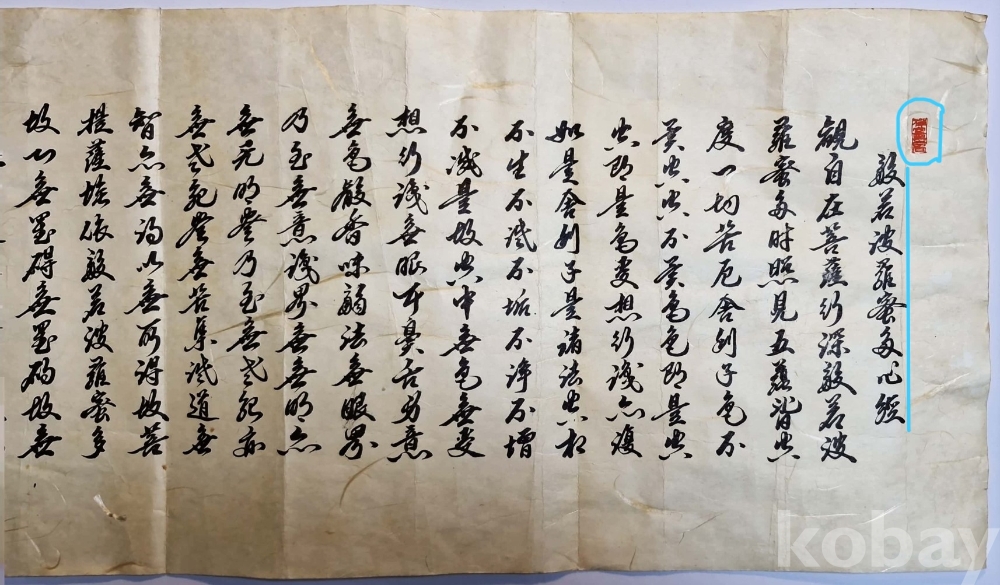 般若波羅蜜多心經
觀自在菩薩行深般若波
羅蜜多時照見五蘊皆空
度一切苦厄舍利子色不
異空空不異色色即是空
空即是色受想行識亦復
如是舍利子是諸法空相
不生不滅不垢不淨不增
不減是故空中無色無受
想行識無眼耳鼻舌身意
無色聲香味觸法無眼界
乃至無意識界無無明亦
無无明盡乃至無老死亦
無老死盡無苦集滅道無
智亦無得以無所得故菩
提薩埵依般若波羅蜜多
故心無罣碍無罣碍故無
kobay